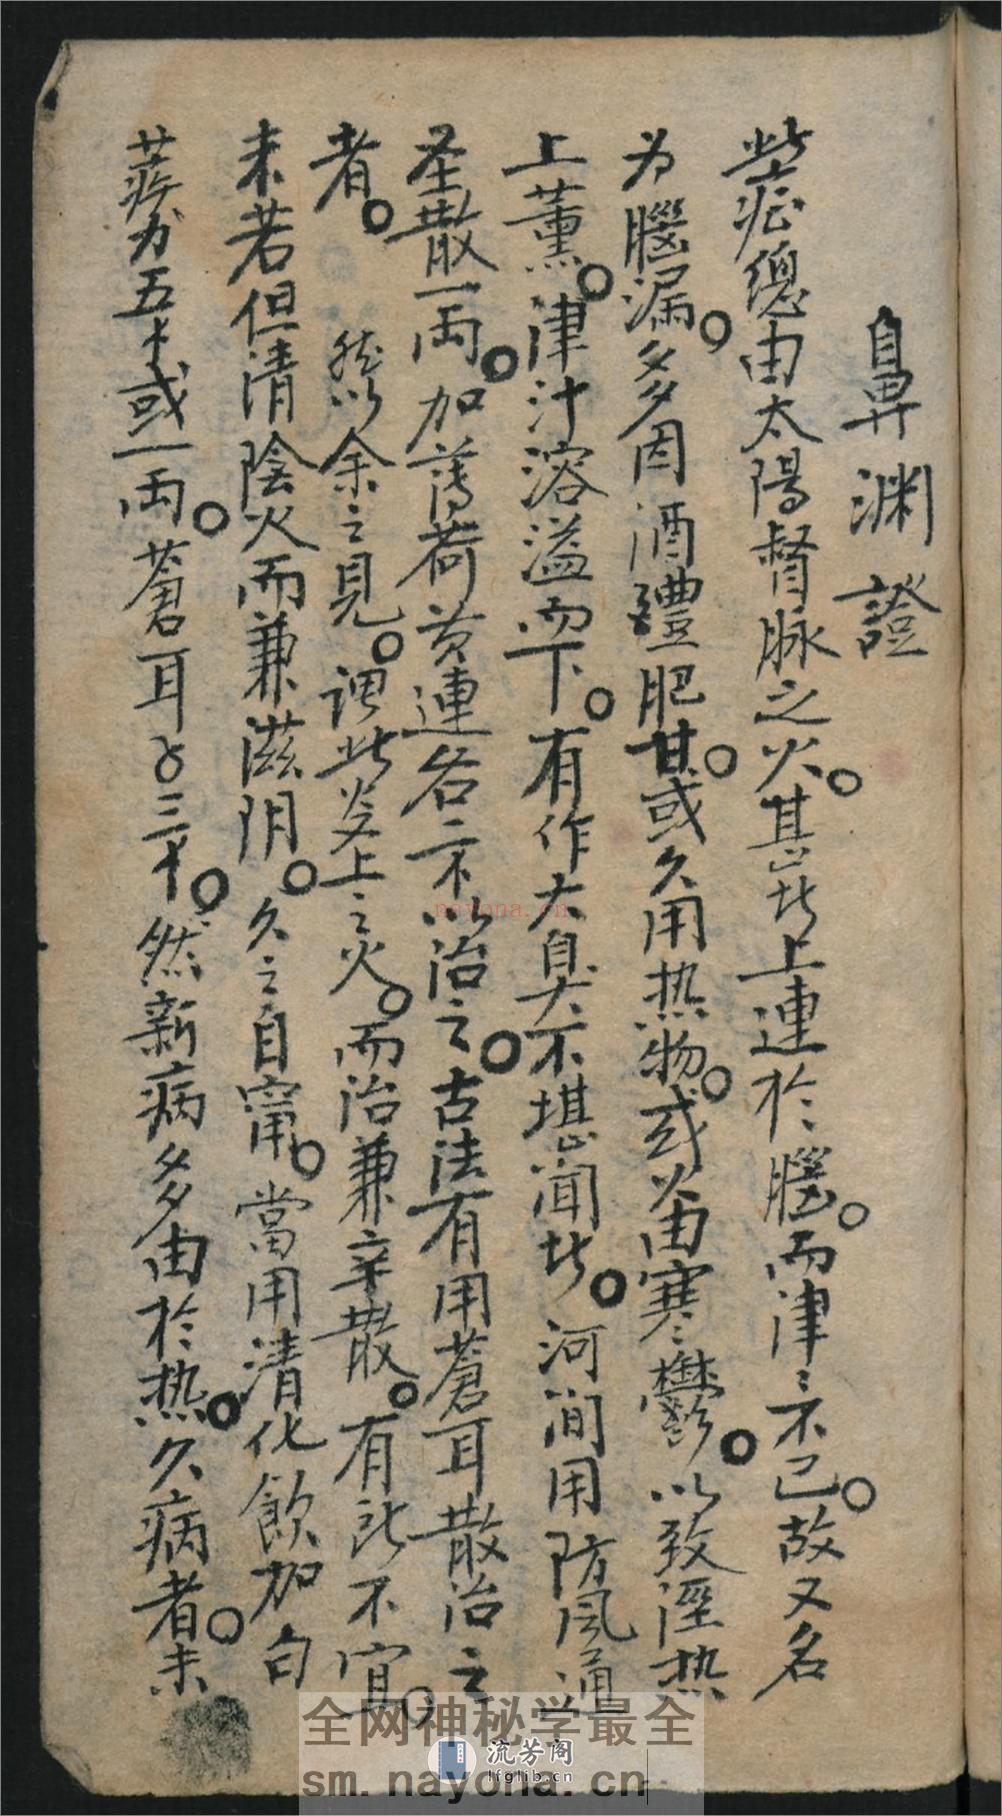 鼻渊證
此症總由太陽督脉之火。甚者上連於腦。而津〻不已。故又名
为腦漏。多因酒醴肥甘。或久用热物。或火由寒鬱。以致溼热
上薰。津汁溶溢而下。有作大臭不堪闻者。河间用防风通
圣散一两。加薄荷黄連各二不以治之。古法有用蒼耳散治之
者。然以余之見。谓此炎上之火。而治兼辛散。有所不宜。
未若但清陰火而兼滋阴。久之自甯。當用清化飲加白
蒺藜五才或一两。蒼耳子三才。然新病多由於热。久病者未
全网神秘学最全
流芳阁
lfglib.cn
sm.nayona.cn
nayona.cn